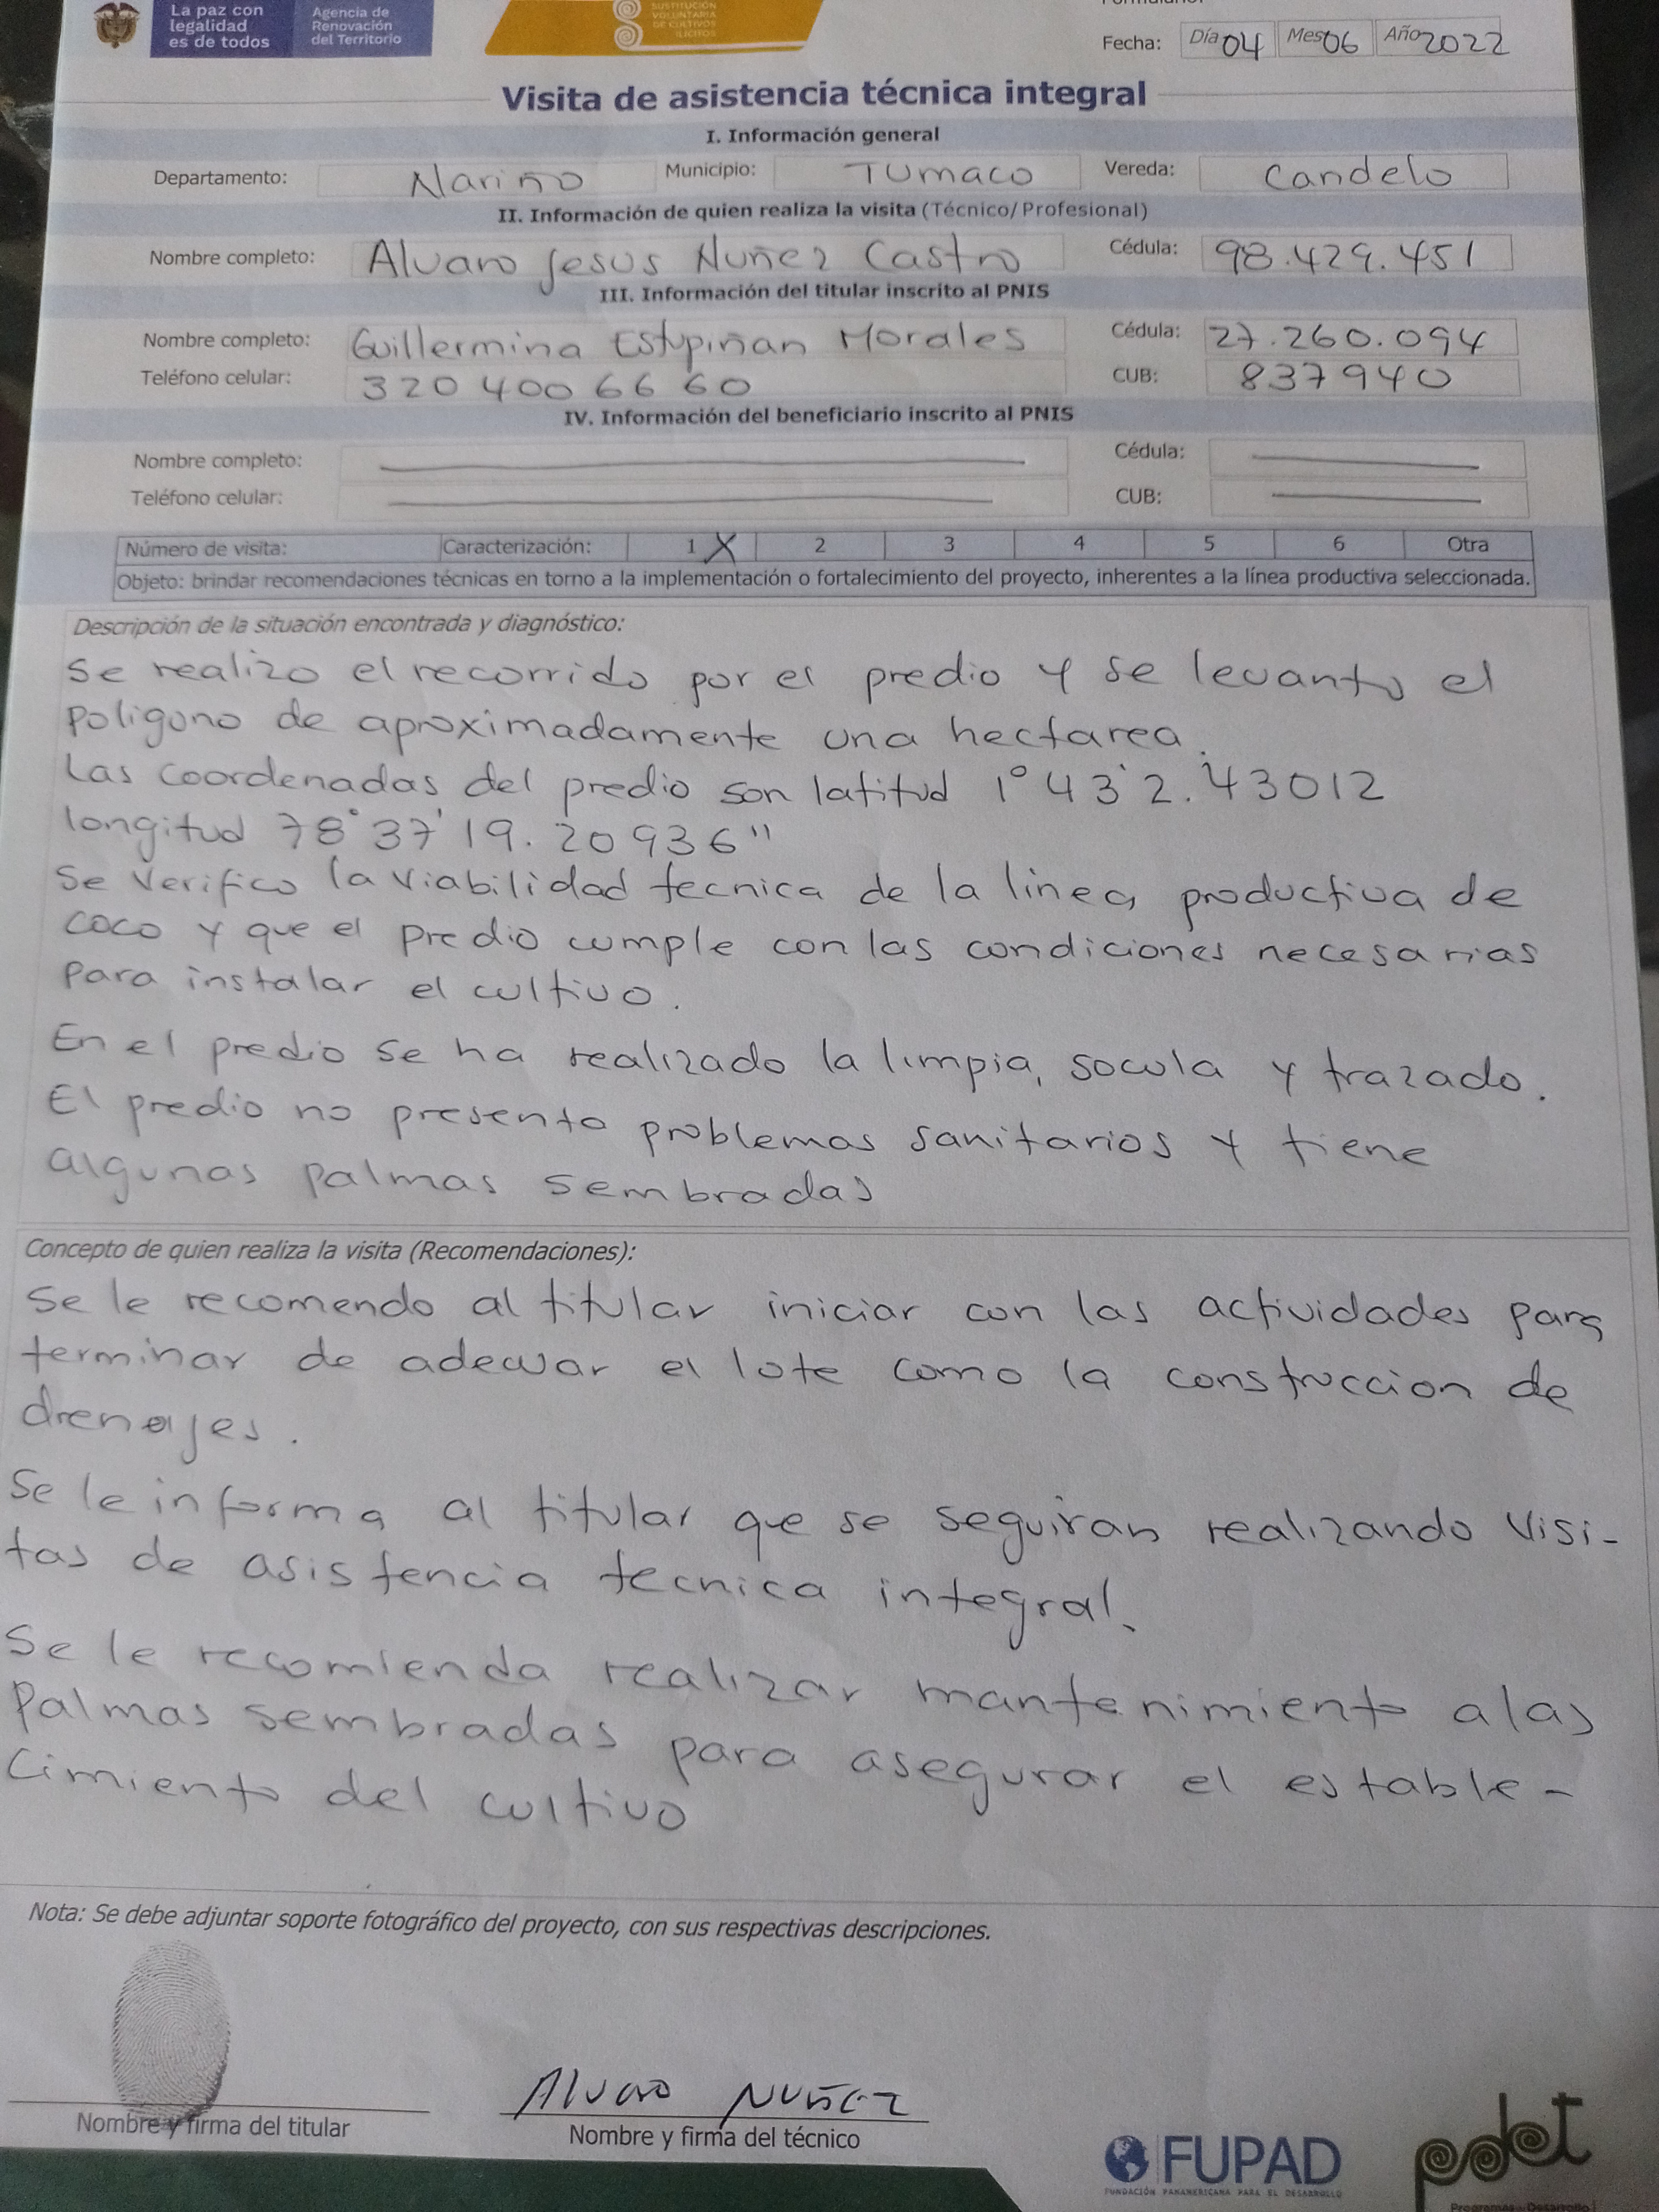 La paz con
legalidad
es de todos
Agencia de
Renovación
del Territorio
SUSTITUCIÓN
VOLUNTARIA
DE CULTIVOS
ILÍCITOS
Fecha: Día 04 Mes 06 Año 2022
Visita de asistencia técnica integral
I. Información general
Departamento: Nariño Municipio: Tumaco Vereda: Candelo
II. Información de quien realiza la visita (Técnico/Profesional)
Nombre completo: Alvaro Jesus Nuñez Castro Cédula: 98.429.451
III. Información del titular inscrito al PNIS
Nombre completo: Guillermina Estupiñan Morales Cédula: 27.260.094
Teléfono celular: 320 400 66 60 CUB: 837940
IV. Información del beneficiario inscrito al PNIS
Nombre completo: Cédula:
Teléfono celular: CUB:
Número de visita: Caracterización: 1 X 2 3 4 5 6 Otra
Objeto: brindar recomendaciones técnicas en torno a la implementación o fortalecimiento del proyecto, inherentes a la línea productiva seleccionada.
Descripción de la situación encontrada y diagnóstico:
Se realizo el recorrido por el predio y se levanto el
poligono de aproximadamente una hectarea.
Las coordenadas del predio son latitud 1° 43' 2.43012
longitud 78° 37' 19.20936"
Se verifico la viabilidad tecnica de la linea productiva de
coco y que el predio cumple con las condiciones necesarias
para instalar el cultivo.
En el predio se ha realizado la limpia, socula y trazado.
El predio no presenta problemas sanitarios y tiene
algunas palmas sembradas
Concepto de quien realiza la visita (Recomendaciones):
Se le recomendo al titular iniciar con las actividades para
terminar de adecuar el lote como la construccion de
drenajes.
Se le informa al titular que se seguiran realizando visi-
tas de asistencia tecnica integral.
Se le recomienda realizar mantenimiento a las
palmas sembradas para asegurar el estable-
cimiento del cultivo
Nota: Se debe adjuntar soporte fotográfico del proyecto, con sus respectivas descripciones.
Alvaro Nuñez
Nombre y firma del titular Nombre y firma del técnico
FUPAD
FUNDACIÓN PANAMERICANA PARA EL DESARROLLO
pdet
Programas de Desarrollo